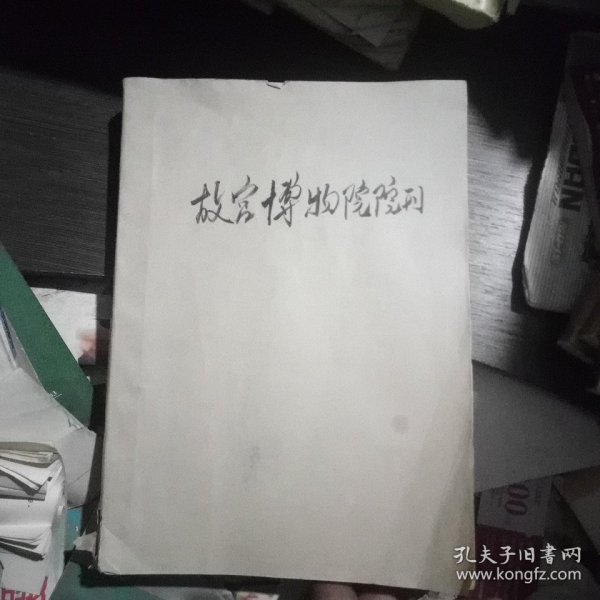 故宫博物院院刊
孔夫子旧書网
www.kongfz.com